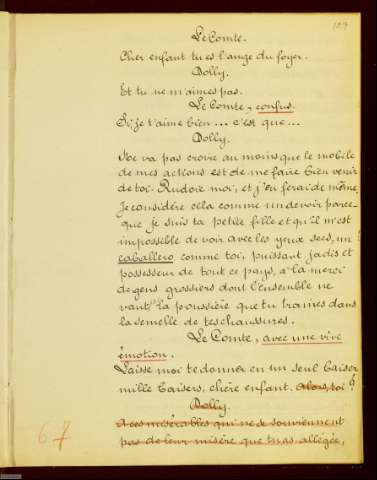 109
Le Comte.
Cher enfant tu es l'ange du foyer.
Dolly.
Et tu ne m'aimes pas.
Le Comte, confus.
Si, je t'aime bien... c'est que...
Dolly.
Ne va pas croire au moins que le mobile
de mes actions est de me faire bien venir
de toi. Rudoie moi, et j'en ferai de même.
Je considère cela comme un devoir parce-
que je suis ta petite fille et qu'il m'est
impossible de voir avec les yeux secs, un
caballero comme toi, puissant jadis et
possesseur de tout ce pays, a la merci
de gens grossiers dont l'ensemble ne
vaut la poussière que tu traines dans
la semelle de tes chaussures.
Le Comte, avec une vive
émotion.
Laisse moi te donner en un seul baiser
mille baisers, chère enfant. Alors, toi
Dolly.
A ces misérables qui ne se souviennent
pas de leur misère que tu as allégée,
67